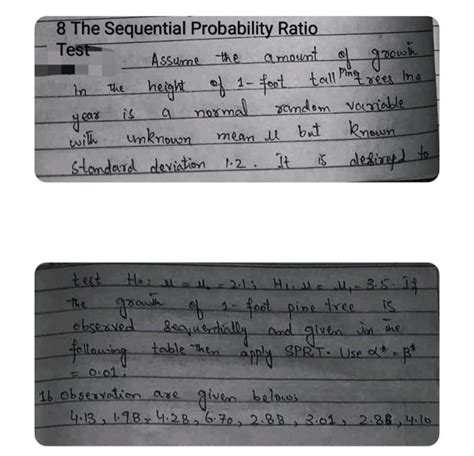 8 The Sequential Probability Ratio
Test
Assume the amount of growth
in the height of 1-foot tall Pine trees in a
year is a normal random variable
with unknown mean μ but known
standard deviation 1.2. It is desired to
test H₀: μ = μ₀ = 2.1; H₁: μ = μ₁ = 3.5. If
the growth of 1-foot pine tree is
observed sequentially and given in the
following table then apply SPRT. Use α* = β*
= 0.01.
16 observation are given below:
4.13, 1.98, 4.28, 6.70, 2.88, 3.01, 2.88, 4.10